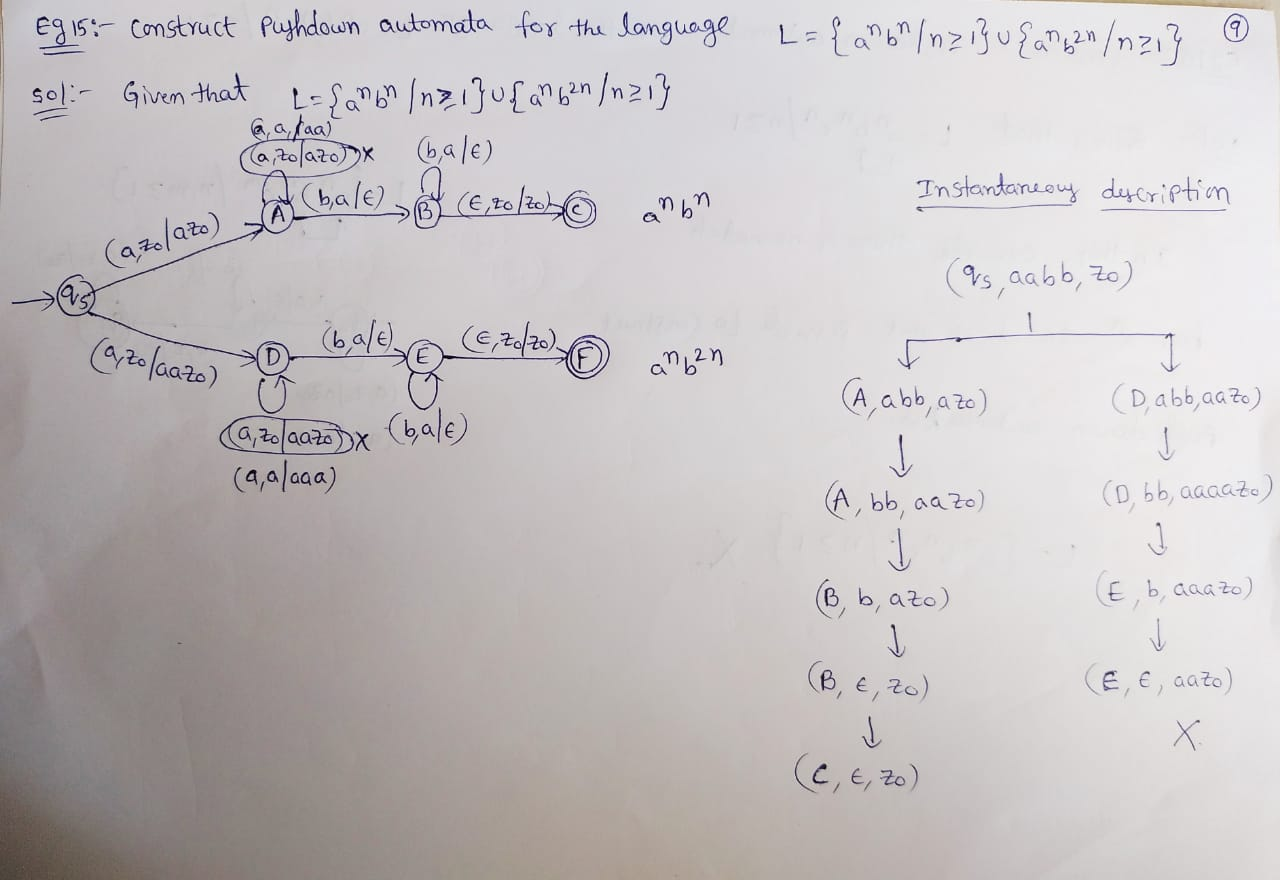 Eg 15:- Construct Pushdown automata for the language L = {aⁿbⁿ / n≥1} ∪ {aⁿb²ⁿ / n≥1} 9
Sol:- Given that L = {aⁿbⁿ / n≥1} ∪ {aⁿb²ⁿ / n≥1}
(a, a, /aa)
(a, z0/az0) x (b, a/ε)
(a, z0/az0) A (b, a/ε) B (ε, z0/z0) C aⁿbⁿ
qs
(a, z0/aaz0) D (b, a/ε) E (ε, z0/z0) F aⁿb²ⁿ
(a, z0/aaz0) x (b, a/ε)
(a, a/aaa)
Instantaneous description
(qs, aabb, z0)
(A, abb, az0) (D, abb, aaz0)
(A, bb, aaz0) (D, bb, aaaaz0)
(B, b, az0) (E, b, aaaz0)
(B, ε, z0) (E, ε, aaz0)
X.
(C, ε, z0)